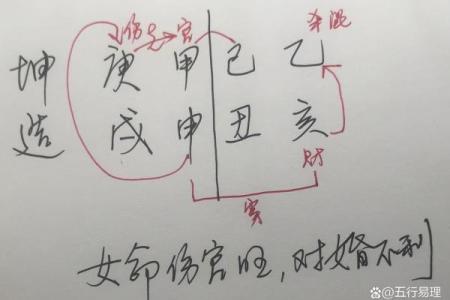 杀混
伤 官
坤 庚 甲 己 乙
造 戌 申 丑 亥
财
害
女命伤官旺，对婚不利
百家号/五行易理